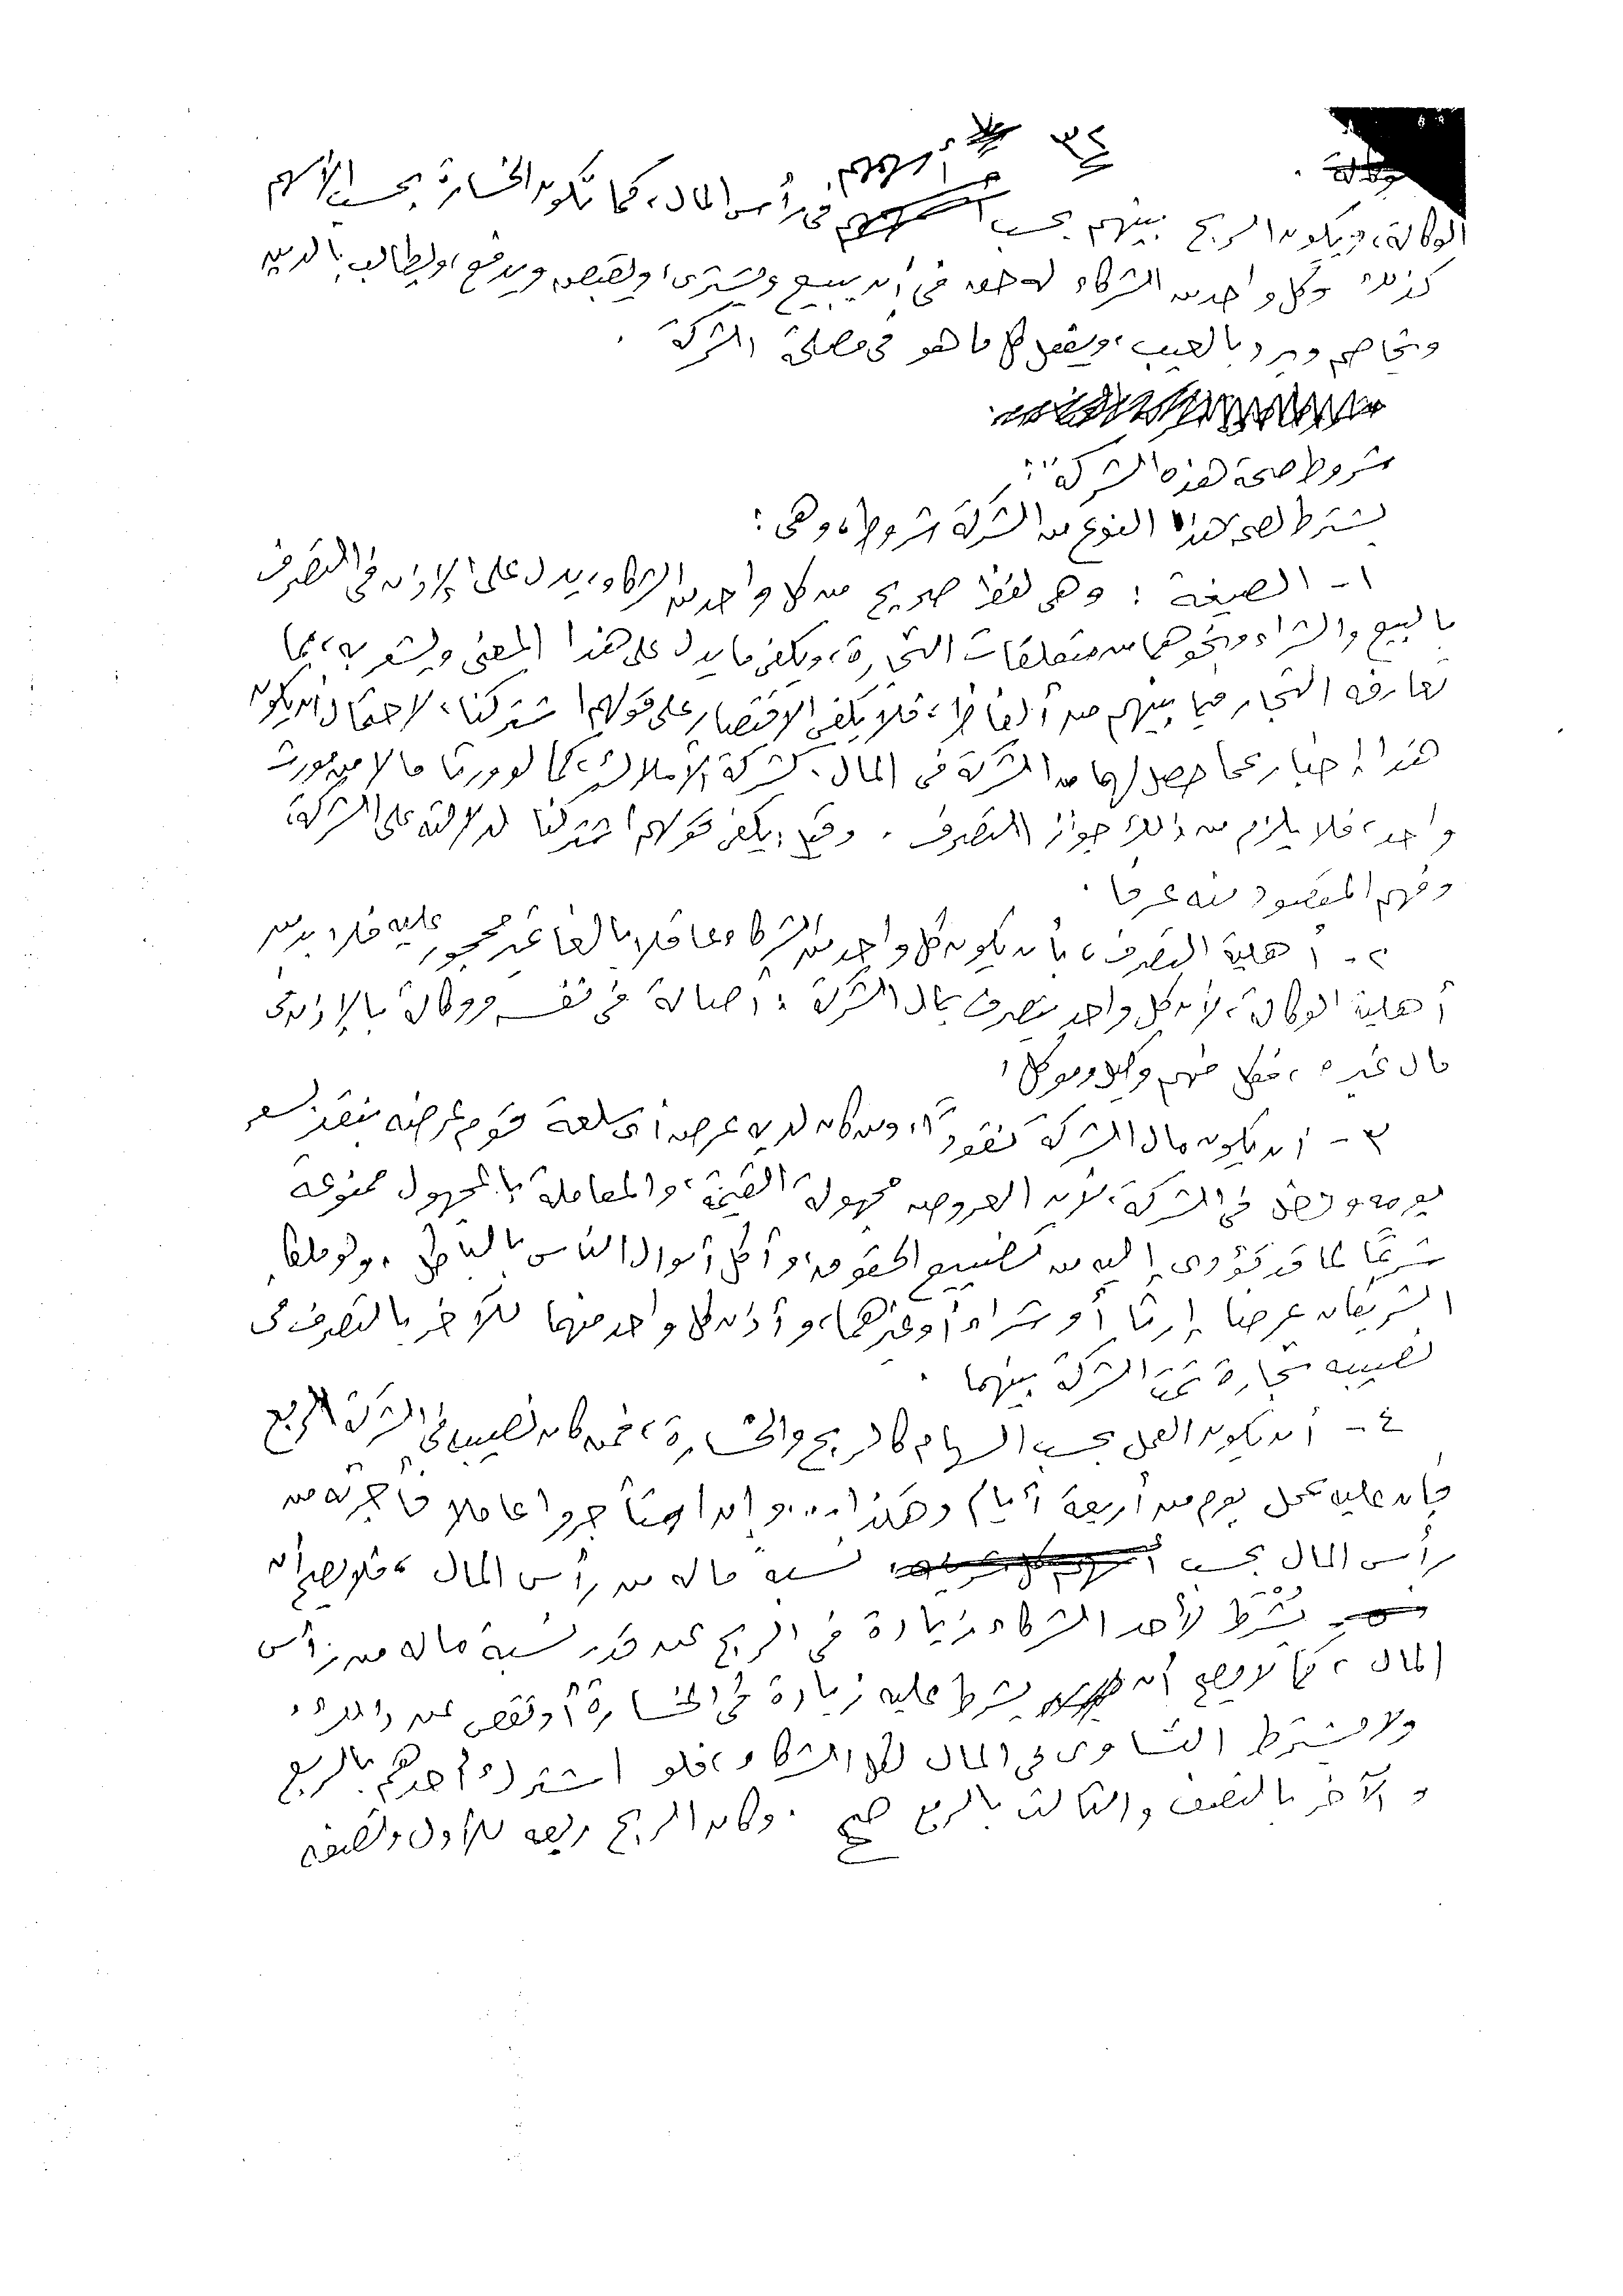 ٣٤
الوكالة، ويكون الربح بينهم بحسب أسهمهم في رأس المال، كما تكون الخسارة بحسب الأسهم
كذلك وكل واحد من الشركاء له حق في أن يبيع ويشترى، ويقبض ويدفع، ويطالب بالدين
ويخاصم ويرد بالعيب، ويفعل كل ما هو في مصلحة الشركة .
شروط صحة هذه الشركة :
يشترط لصحة هذا النوع من الشركة شروط، وهى :
١ - الصيغة : وهى لفظ صريح من كل واحد من الشركاء، يدل على الإذن في التصرف
بالبيع والشراء ونحوهما من متعلقات التجارة، ويكفى ما يدل على هذا المعنى ويشعر به، مما
تعارفه التجار فيما بينهم من ألفاظ، فلا يكفى الاقتصار على قولهم اشتركنا، لاحتمال أن يكون
هذا إخبار عما حصل لهما من الشركة في المال، كشركة الأملاك، كما لو ورثا مالا من مورث
واحد، فلا يلزم من ذلك جواز التصرف . وقيل : يكفى قولهم اشتركنا لدلالته على الشركة،
وفهم المقصود منه عرفا .
٢ - أهلية التصرف، بأن يكون كل واحد من الشركاء عاقلا بالغا غير محجور عليه فلا بد من
أهلية الوكالة، لأن كل واحد يتصرف بمال الشركة : أصالة في نفسه ووكالة بالإذن في
مال غيره، فكل منهم وكيل وموكل،
٣ - أن يكون مال الشركة نقودًا، ومن كان لديه عرض أى سلعة قوم عرضه بنقد بسعر
يومه ودخل في الشركة، لأن العروض مجهولة القيمة، والمعاملة بالمجهول ممنوعة
شرعًا لما قد تؤدى إليه من تضييع الحقوق، وأكل أموال الناس بالباطل، ولو ملك
الشريكان عرضا إرثا أو شراء أو غيرهما، وأذن كل واحد منهما للآخر بالتصرف في
نصيبه تجارة تمت الشركة بينهما .
٤ - أن يكون العمل بحسب السهام كالربح والخسارة، فمن كان نصيبه في الشركة الربع
فإن عليه عمل يوم من أربعة أيام وهكذا... وإن استأجروا عاملا فأجرته من
رأس المال بحسب نسبة ماله من رأس المال، فلا يصح أن
يُشْتَرَط لأحد الشركاء زيادة في الربح عن قدر نسبة ماله من رأس
المال، كما لا يصح أن يشرط عليه زيادة في الخسارة أو نقص عن ذلك،
ولا يشترط التساوى في المال لكل الشركاء، فلو اشترك أحدهم بالربع
والآخر بالنصف والثالث بالربع صح . وكان الربح ربعه للأول ونصفه